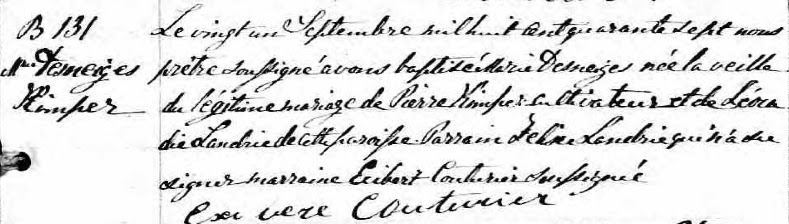 B 131
Mie Desneiges
Kimper
Le vingt un Septembre mil huit cent quarante sept nous
prêtre soussigné avons baptisé Marie Desneiges née la veille
du légitime mariage de Pierre Kimper cultivateur et de Léoca
die Landrie de cette paroisse. Parrain Felix Landrie qui n'a su
signer marraine Couturier soussigné
Couturier